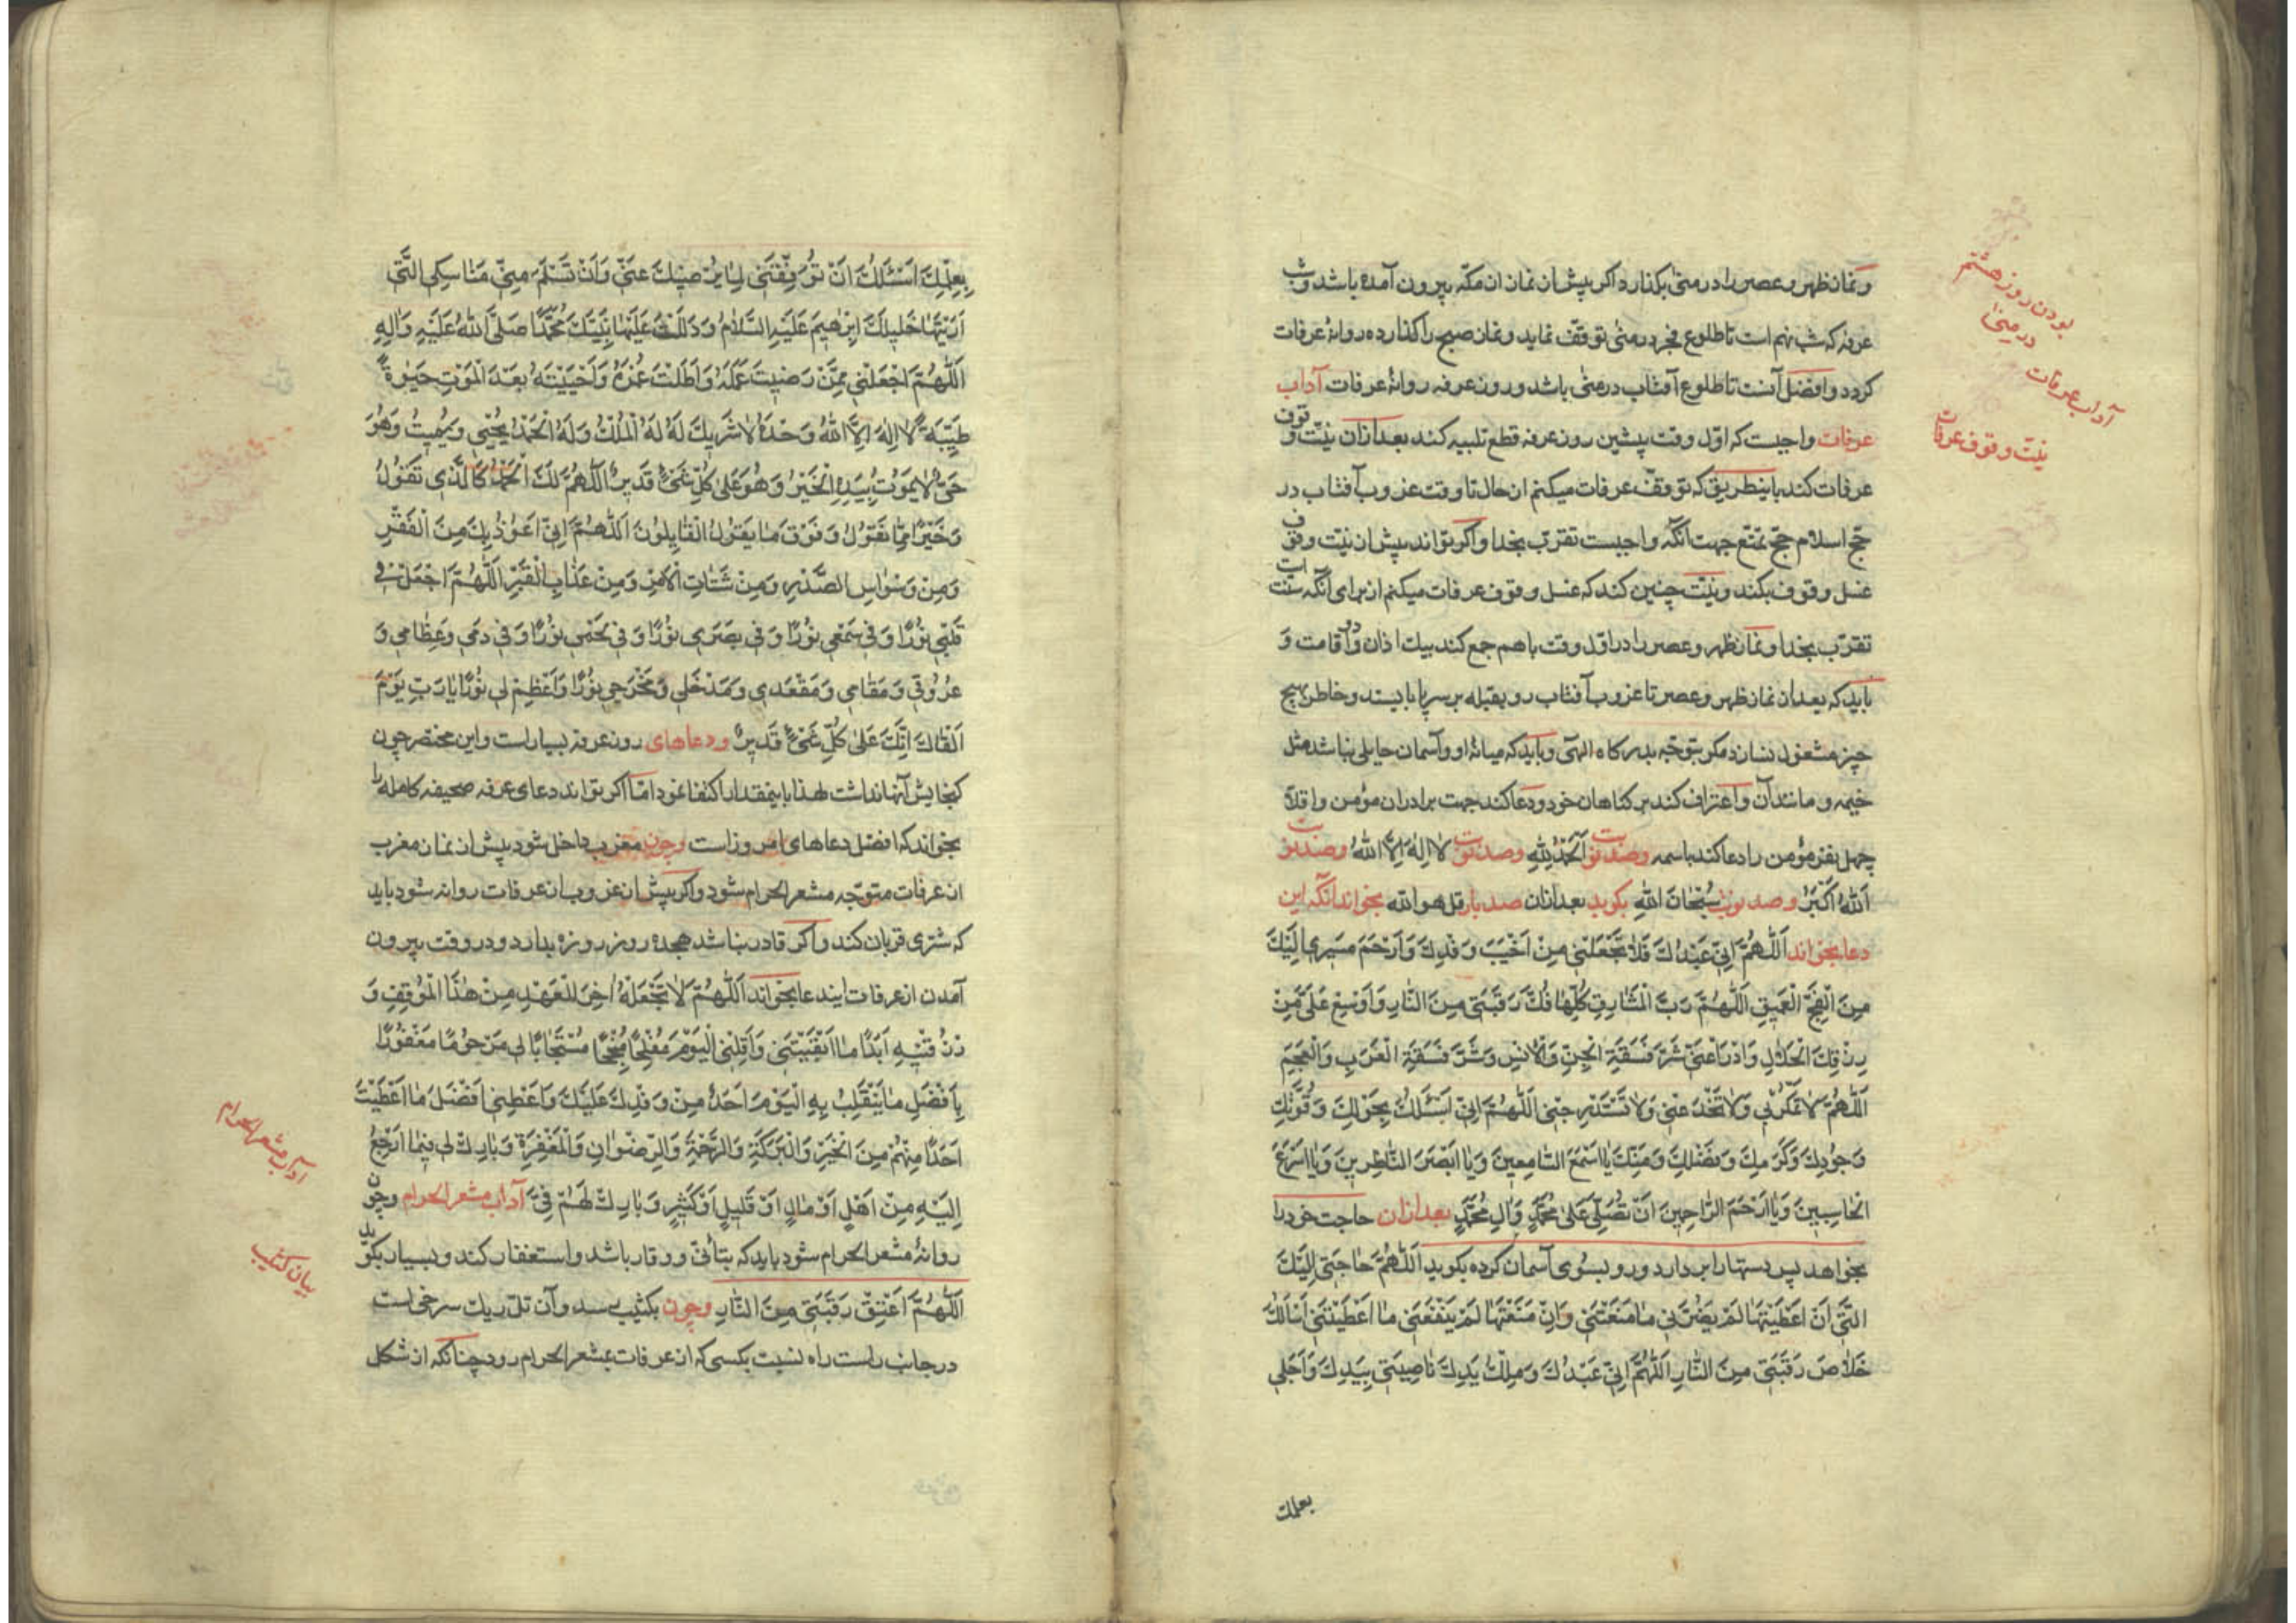 و نماز ظهر و عصر را در منی بگذارد اگر پیش از نماز از مکه بیرون آمده باشد و شب
عرفه که شب نهم است تا طلوع فجر در منی توقف نماید و نماز صبح را گذارده روانهٔ عرفات
گردد و افضل آنست تا طلوع آفتاب در منی باشد و روز عرفه روانهٔ عرفات آداب
عرفات واجبست که اول وقت پیشین روز عرفه قطع تلبیه کند بعد ازان نیّت وقوف
عرفات کند باینطریق که توقف عرفات میکنم از حال تا وقت غروب آفتاب در
حجّ اسلام حجّ تمتع جهت آنکه واجبست تقرّب بخدا و اگر تواند پیش از نیّت وقوف
غسل وقوف بکند و نیّت چنین کند که غسل وقوف عرفات میکنم از برای آنکه سنّت است
تقرّب بخدا و نماز ظهر و عصر را در اول وقت باهم جمع کند بیک اذان و دو اقامت و
باید که بعد از نماز ظهر و عصر تا غروب آفتاب رو بقبله بر سر پا بایستد و خاطر بهیچ
چیز مشغول نسازد مگر بتوجّه بدرگاه الهی و باید که میانهٔ او و آسمان حایلی نباشد مثل
خیمه و مانند آن و اعتراف کند بر گناهان خود و دعا کند جهت برادران مؤمن و اقلاً
چهل نفر مؤمن را دعا کند باسمه و صد نوبت اَلْحَمْدُ لِلّٰهِ و صد نوبت لا اِلٰهَ اِلاَّ اللهُ و صد نوبت
اَللهُ اَكْبَرُ و صد نوبت سُبْحَانَ اللهِ بگوید بعد ازان صد بار قل هو الله بخواند آنگه این
دعا بخواند اَللّٰهُمَّ اِنّي عَبْدُكَ فَلاَ تَجْعَلْنِي مِنْ اَخْيَبِ وَفْدِكَ وَارْحَمْ مَسِيرِي اِلَيْكَ
مِنَ الْفَجِّ الْعَمِيقِ اَللّٰهُمَّ رَبَّ الْمَشَارِقِ كُلِّهَا فُكَّ رَقَبَتِي مِنَ النَّارِ وَاَوْسِعْ عَلَيَّ مِنْ
رِزْقِكَ الْحَلاَلِ وَادْرَأْ عَنِّي شَرَّ فَسَقَةِ الْجِنِّ وَالْاِنْسِ وَشَرَّ فَسَقَةِ الْعَرَبِ وَالْعَجَمِ
اَللّٰهُمَّ لاَ تَمْكُرْ بِي وَلاَ تَخْدَعْنِي وَلاَ تَسْتَدْرِجْنِي اَللّٰهُمَّ اِنِّي اَسْئَلُكَ بِحَوْلِكَ وَقُوَّتِكَ
وَجُودِكَ وَكَرَمِكَ وَفَضْلِكَ وَمَنِّكَ يَا اَسْمَعَ السَّامِعِينَ وَيَا اَبْصَرَ النَّاظِرِينَ وَيَا اَسْرَعَ
الْحَاسِبِينَ وَيَا اَرْحَمَ الرَّاحِمِينَ اَنْ تُصَلِّيَ عَلٰى مُحَمَّدٍ وَاٰلِ مُحَمَّدٍ بعد ازان حاجت خود را
بخواهد پس دستها را بردارد و رو بسوی آسمان کرده بگوید اَللّٰهُمَّ حَاجَتِي اِلَيْكَ
الَّتِي اَنْ اَعْطَيْتَهَا لَمْ يَضُرَّنِي مَا مَنَعْتَنِي وَاِنْ مَنَعْتَهَا لَمْ يَنْفَعْنِي مَا اَعْطَيْتَنِي اَسْاَلُكَ
خَلاَصَ رَقَبَتِي مِنَ النَّارِ اَللّٰهُمَّ اِنِّي عَبْدُكَ وَمِلْكُ يَدِكَ نَاصِيَتِي بِيَدِكَ وَاَجَلِي
بعلمك
بودن روز هشتم
در منی
آداب عرفات
نیّت وقوف عرفات
بِعِلْمِكَ اَسْئَلُكَ اَنْ تُوَفِّقَنِي لِمَا يُرْضِيكَ عَنِّي وَاَنْ تَسَلَّمَ مِنِّي مَنَاسِكِيَ الَّتِي
اَرَيْتَهَا خَلِيلَكَ اِبْرٰهِيمَ عَلَيْهِ السَّلاَمُ وَدَلَلْتَ عَلَيْهَا نَبِيَّكَ مُحَمَّدًا صَلَّى اللهُ عَلَيْهِ وَاٰلِهِ
اَللّٰهُمَّ اجْعَلْنِي مِمَّنْ رَضِيتَ عَمَلَهُ وَاَطَلْتَ عُمْرَهُ وَاَحْيَيْتَهُ بَعْدَ الْمَوْتِ حَيٰوةً
طَيِّبَةً لاَ اِلٰهَ اِلاَّ اللهُ وَحْدَهُ لاَ شَرِيكَ لَهُ لَهُ الْمُلْكُ وَلَهُ الْحَمْدُ يُحْيِي وَيُمِيتُ وَهُوَ
حَيٌّ لاَ يَمُوتُ بِيَدِهِ الْخَيْرُ وَهُوَ عَلٰى كُلِّ شَيْءٍ قَدِيرٌ اَللّٰهُمَّ لَكَ الْحَمْدُ كَالَّذِي تَقُولُ
وَخَيْرًا مِمَّا نَقُولُ وَفَوْقَ مَا يَقُولُ الْقَايِلُونَ اَللّٰهُمَّ اِنِّي اَعُوذُ بِكَ مِنَ الْفَقْرِ
وَمِنْ وَسْوَاسِ الصَّدْرِ وَمِنْ شَتَاتِ الْاَمْرِ وَمِنْ عَذَابِ الْقَبْرِ اَللّٰهُمَّ اجْعَلْ فِي
قَلْبِي نُورًا وَفِي سَمْعِي نُورًا وَفِي بَصَرِي نُورًا وَفِي لَحْمِي نُورًا وَفِي دَمِي وَعِظَامِي وَ
عُرُوقِي وَمَقَامِي وَمَقْعَدِي وَمَدْخَلِي وَمَخْرَجِي نُورًا وَاَعْظِمْ لِي نُورًا يَا رَبِّ يَوْمَ
اَلْقَاكَ اِنَّكَ عَلٰى كُلِّ شَيْءٍ قَدِيرٌ و دعاهای روز عرفه بسیار است و این مختصر چون
گنجایش آنها نداشت لهذا باینمقدار اکتفا نمود امّا اگر تواند دعای عرفه صحیفه کامله را
بخواند که افضل دعاهای امروز است و چون مغرب داخل شود پیش از نماز مغرب
از عرفات متوجّه مشعر الحرام شود و اگر پیش از غروب از عرفات روانه شود باید
که شتری قربان کند و اگر قادر نباشد هجده روز روزه بدارد و در وقت بیرون
آمدن از عرفات ایندعا بخواند اَللّٰهُمَّ لاَ تَجْعَلْهُ اٰخِرَ الْعَهْدِ مِنْ هٰذَا الْمَوْقِفِ وَ
زْنُقْنِيهِ اَبَدًا مَا اَبْقَيْتَنِي وَاَقْلِبْنِي الْيَوْمَ مُفْلِحًا مُنْجِحًا مُسْتَجَابًا لِي مَرْحُومًا مَغْفُورًا
بِاَفْضَلِ مَا يَنْقَلِبُ بِهِ الْيَوْمَ اَحَدٌ مِنْ وَفْدِكَ عَلَيْكَ وَاَعْطِنِي اَفْضَلَ مَا اَعْطَيْتَ
اَحَدًا مِنْهُمْ مِنَ الْخَيْرِ وَالْبَرَكَةِ وَالرَّحْمَةِ وَالرِّضْوَانِ وَالْمَغْفِرَةِ وَبَارِكْ لِي فِيمَا اَرْجِعُ
اِلَيْهِ مِنْ اَهْلٍ اَوْ مَالٍ اَوْ قَلِيلٍ اَوْ كَثِيرٍ وَبَارِكْ لَهُمْ فِيَّ آداب مشعر الحرام و چون
روانهٔ مشعر الحرام شود باید که بتأنّی و وقار باشد و استغفار کند و بسیار بگوید
اَللّٰهُمَّ اَعْتِقْ رَقَبَتِي مِنَ النَّارِ و چون بکثیب رسد و آن تلّ ریک سرخی است
در جانب راست راه نسبت بکسی که از عرفات بمشعر الحرام رود چنانکه از شکل
آداب مشعر الحرام
بیان کثیب